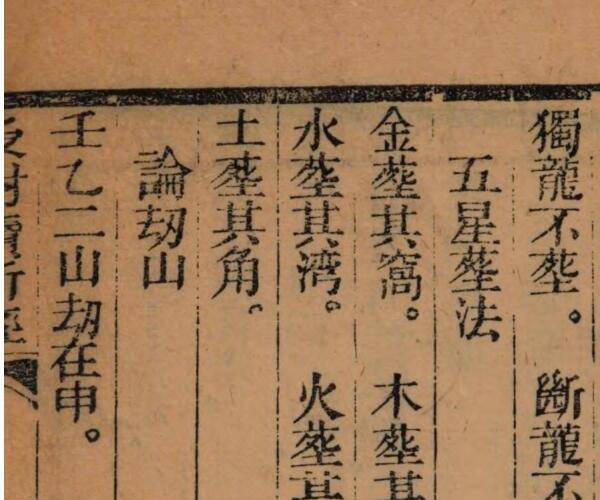 獨龍不塟。 斷龍不
五星塟法
金塟其窩。 木塟其
水塟其湾。 火塟其
土塟其角。
論刼山
壬乙二山刼在申。